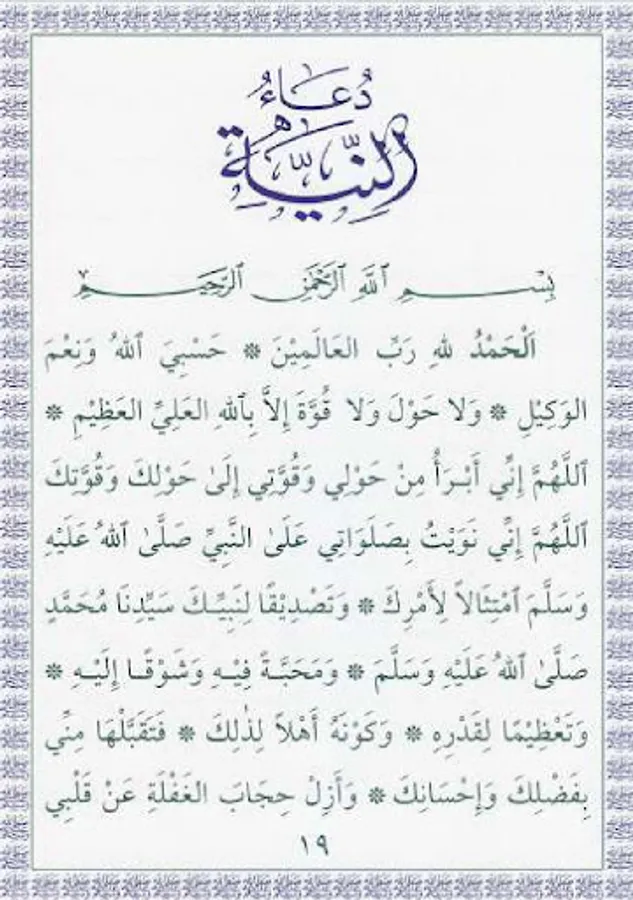 دُعَاءُ
النِّيَّةِ
بِسْمِ ٱللَّهِ ٱلرَّحْمٰنِ ٱلرَّحِيمِ
اَلْحَمْدُ للهِ رَبِّ العَالَمِيْنَ ❊ حَسْبِيَ ٱللهُ وَنِعْمَ
الوَكِيْلِ ❊ وَلا حَوْلَ وَلا قُوَّةَ إِلاَّ بِٱللهِ العَلِيِّ العَظِيْمِ ❊
ٱللَّهُمَّ إِنِّي أَبْرَأُ مِنْ حَوْلِي وَقُوَّتِي إِلَىٰ حَوْلِكَ وَقُوَّتِكَ
ٱللَّهُمَّ إِنِّي نَوَيْتُ بِصَلَوَاتِي عَلَىٰ النَّبِيِّ صَلَّىٰ ٱللهُ عَلَيْهِ
وَسَلَّمَ ٱمْتِثَالاً لِأَمْرِكَ ❊ وَتَصْدِيْقًا لِنَبِيِّكَ سَيِّدِنَا مُحَمَّدٍ
صَلَّىٰ ٱللهُ عَلَيْهِ وَسَلَّمَ ❊ وَمَحَبَّةً فِيْهِ وَشَوْقًا إِلَيْهِ ❊
وَتَعْظِيْمًا لِقَدْرِهِ ❊ وَكَوْنَهُ أَهْلاً لِذٰلِكَ ❊ فَتَقَبَّلْهَا مِنِّي
بِفَضْلِكَ وَإِحْسَانِكَ ❊ وَأَزِلْ حِجَابَ الغَفْلَةِ عَنْ قَلْبِي
١٩